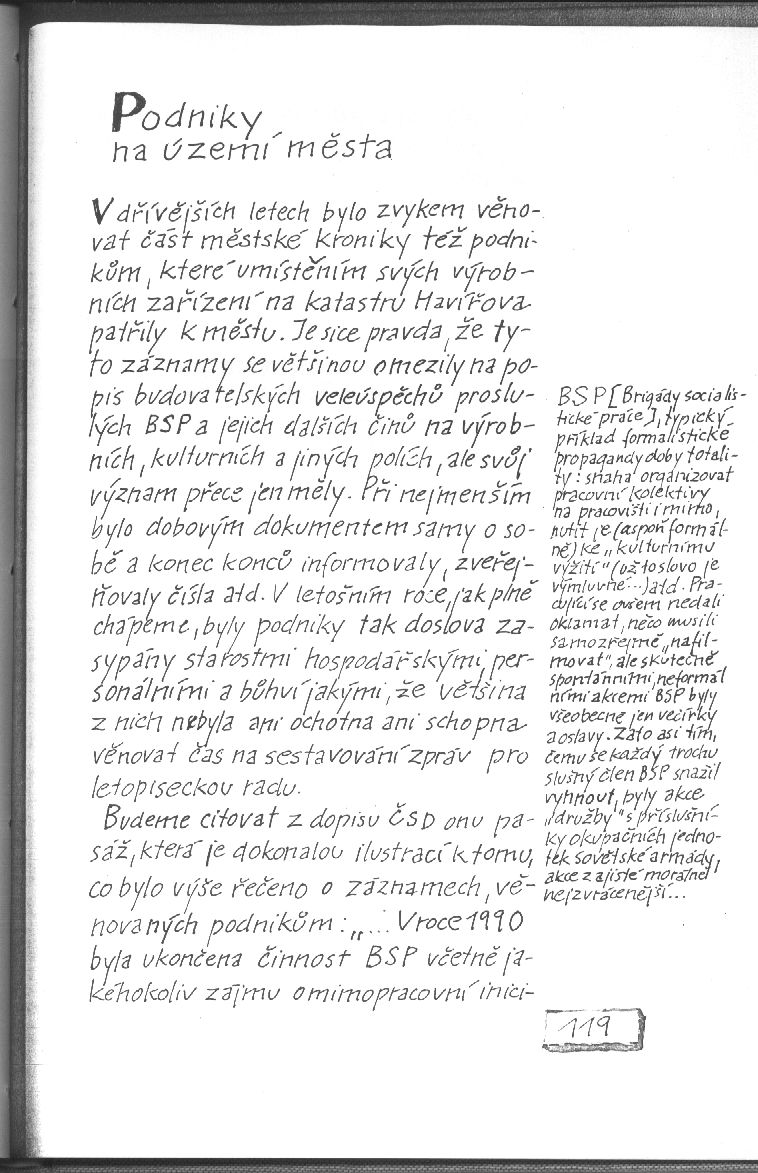 Podniky
na území města
V dřívějších letech bylo zvykem věno-
vat část městské kroniky též podni-
kům, které umístěním svých výrob-
ních zařízení na katastru Havířova
patřily k městu. Je sice pravda, že ty-
to záznamy se většinou omezily na po-
pis budovatelských veleúspěchů proslu-
lých BSP a jejich dalších činů na výrob-
ních, kulturních a jiných polích, ale svůj
význam přece jen měly. Při nejmenším
bylo dobovým dokumentem samy o so-
bě a konec konců informovaly, zveřej-
ňovaly čísla atd. V letošním roce, jak plně
chápeme, byly podniky tak doslova za-
sypány starostmi hospodářskými, per-
sonálními a bůhví jakými, že většina
z nich nebyla ani ochotna ani schopna
věnovat čas na sestavování zpráv pro
letopiseckou radu.
Budeme citovat z dopisu ČSD onu pa-
sáž, která je dokonalou ilustrací k tomu,
co bylo výše řečeno o záznamech, vě-
novaných podnikům: „... V roce 1990
byla ukončena činnost BSP včetně ja-
kéhokoliv zájmu o mimopracovní inici-
BSP [Brigády socialis-
tické práce], typický
příklad formalistické
propagandy doby totali-
ty: snaha organizovat
pracovní kolektivy
na pracovišti i mimo,
nutit je (aspoň formál-
ně) ke „kulturnímu
vyžití" (už to slovo je
výmluvné...) atd. Pra-
cující se ovšem nedali
oklamat, něco musili
samozřejmě „nafil-
movat", ale skutečně
spontánními, neformál
ními akcemi BSP byly
všeobecně jen večírky
a oslavy. Zato asi tím,
čemu se každý trochu
slušný člen BSP snažil
vyhnout, byly akce
„družby" s příslušní-
ky okupačních jedno-
tek Sovětské armády,
akce zajisté morálně
nejzvrácenější...
119